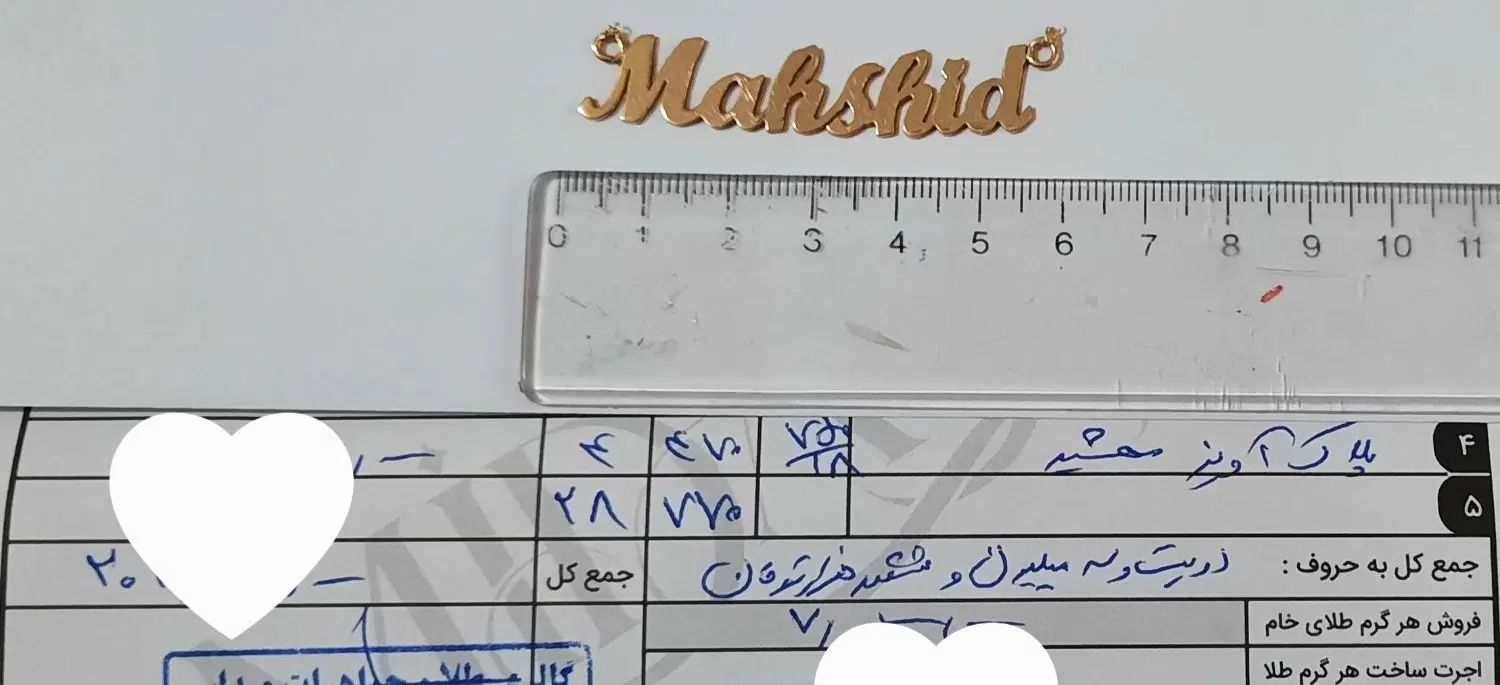 Mahshid
0 1 2 3 4 5 6 7 8 9 10 11
۴ پلاک آویز مهشید ۷۵۰/۱۸ ۴۷۰ ۴
۵ ۷۷۰ ۲۸
جمع کل به حروف : دویست و سه میلیون و هشتصد هزار تومان جمع کل ۲۰
فروش هر گرم طلای خام ۷/
اجرت ساخت هر گرم طلا